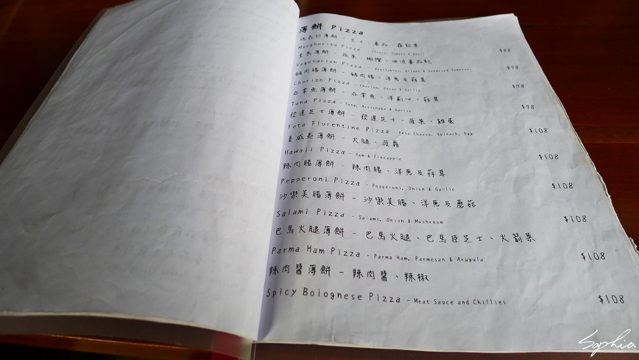 薄餅 Pizza
Margherita Pizza
$88
Vegetarian Pizza
$98
Chorizo Pizza
$98
Tuna Pizza - Tuna, Artichoke & Garlic
$98
Feta Florentine Pizza - Feta Cheese, Spinach, Egg
$108
夏威夷薄餅 - 火腿、菠蘿
Hawaii Pizza - Ham & Pineapple
$108
辣肉腸薄餅 - 辣肉腸、洋蔥及蒜茸
Pepperoni Pizza - Pepperoni, Onion & Garlic
$108
沙樂美腸薄餅 - 沙樂美腸、洋蔥及蘑菇
Salami Pizza - Salami, Onion & Mushroom
$108
巴馬火腿薄餅 - 巴馬火腿、巴馬臣芝士、火箭菜
Parma Ham Pizza - Parma Ham, Parmesan & Arugula
$108
辣肉醬薄餅 - 辣肉醬、辣椒
Spicy Bolognese Pizza - Meat Sauce and Chillies
$108
Sophia